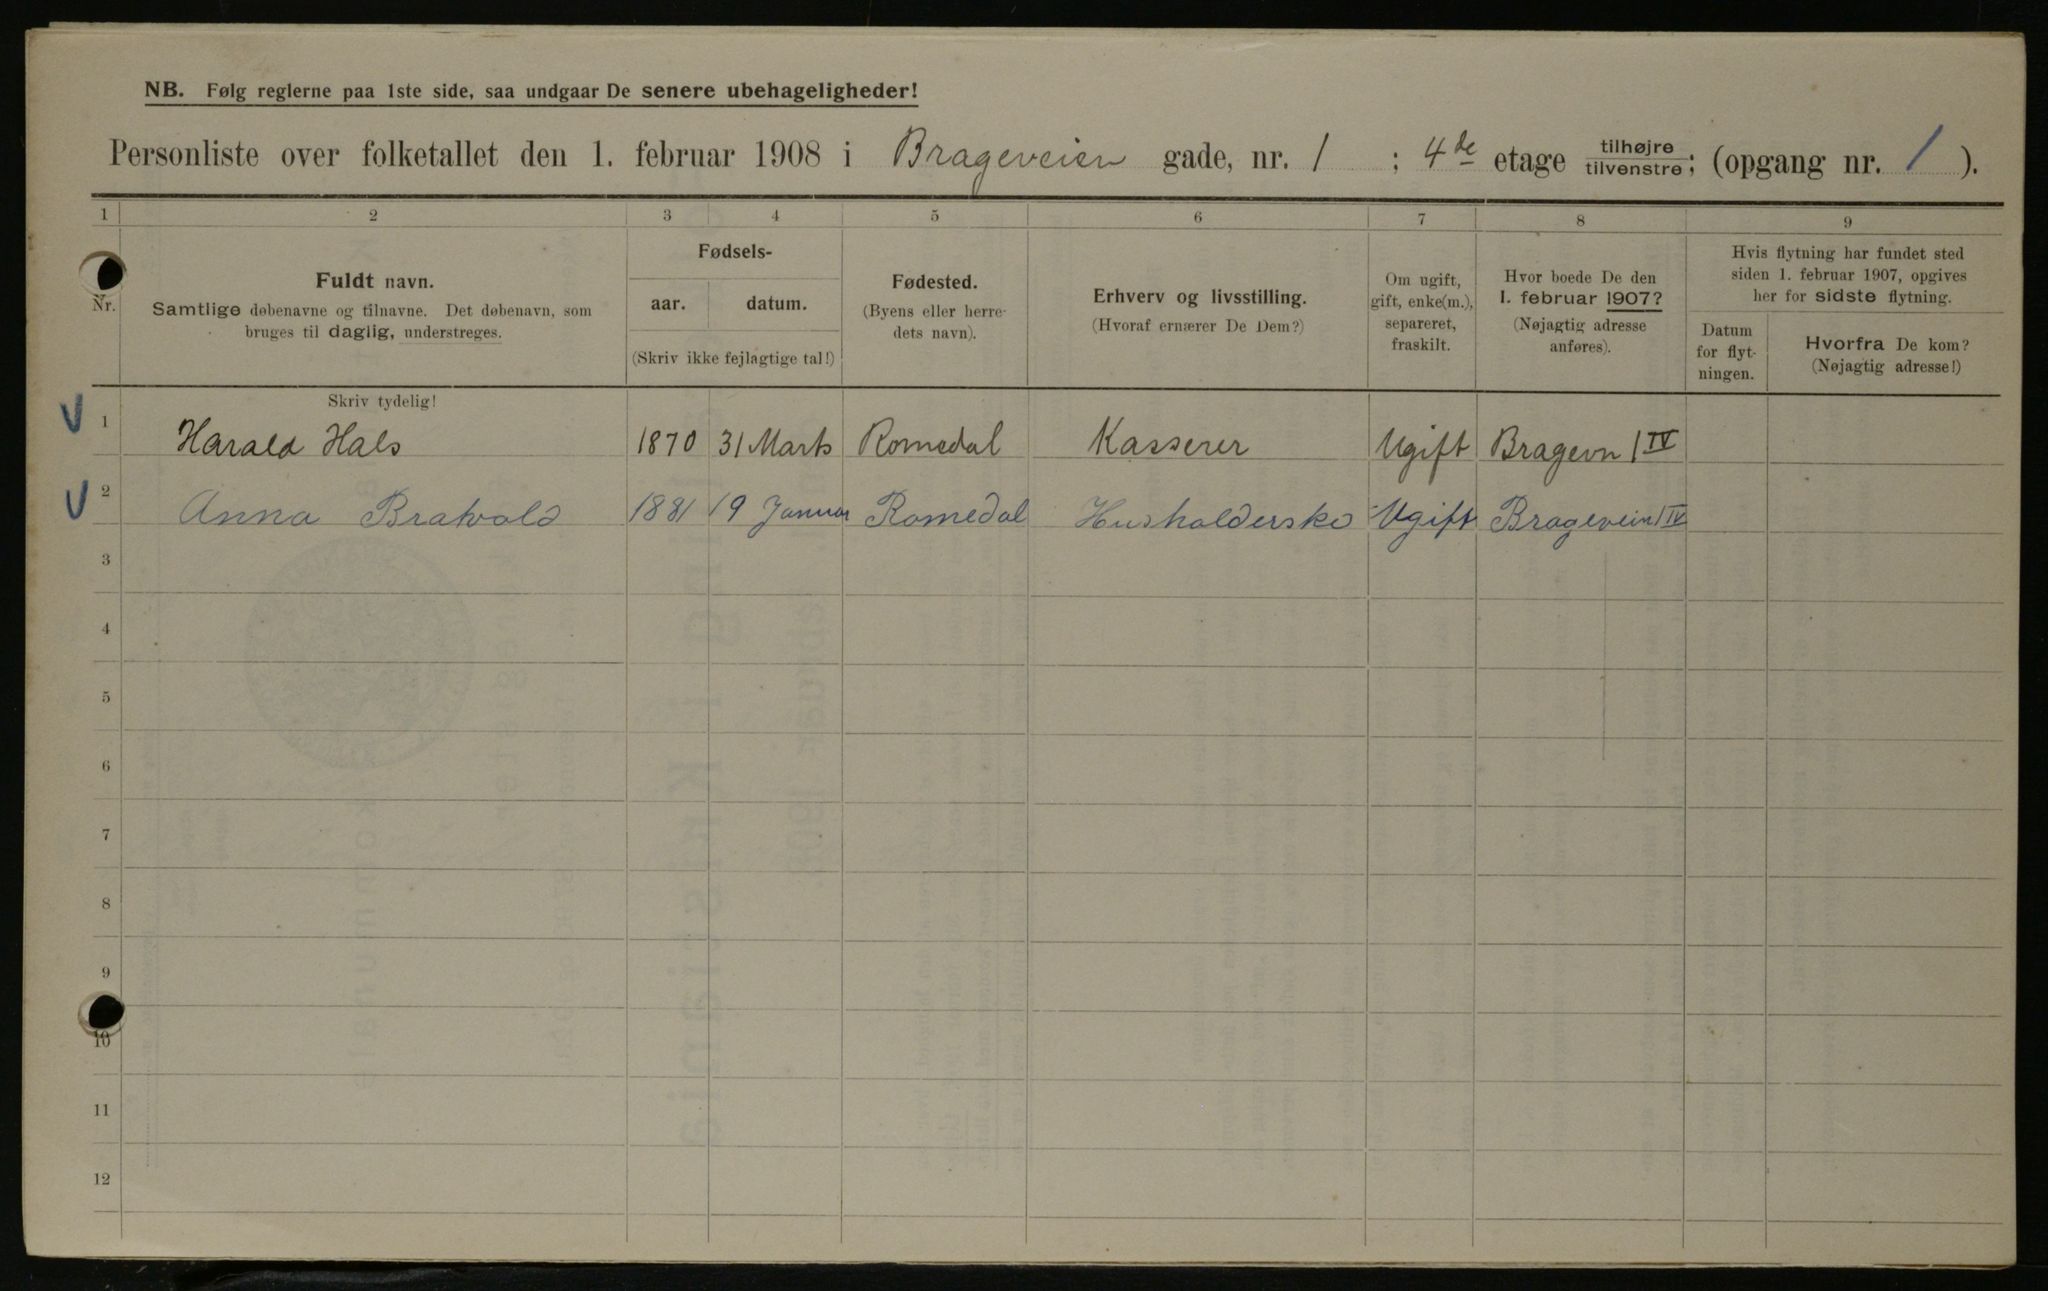 NB. Følg reglerne paa 1ste side, saa undgaar De senere ubehageligheder!
Personliste over folketallet den 1. februar 1908 i Brageveien gade, nr. 1 ; 4de etage tilhøjre tilvenstre; (opgang nr. 1 ).
1 2 3 4 5 6 7 8 9
Nr.
Fuldt navn.
Samtlige døbenavne og tilnavne. Det døbenavn, som
bruges til daglig, understreges.
Fødsels-
aar. datum.
(Skriv ikke fejlagtige tal!)
Fødested.
(Byens eller herre-
dets navn).
Erhverv og livsstilling.
(Hvoraf ernærer De Dem?)
Om ugift,
gift, enke(m.),
separeret,
fraskilt.
Hvor boede De den
1. februar 1907?
(Nøjagtig adresse
anføres).
Hvis flytning har fundet sted
siden 1. februar 1907, opgives
her for sidste flytning.
Datum
for flyt-
ningen.
Hvorfra De kom?
(Nøjagtig adresse!)
Skriv tydelig!
1 Harald Hals 1870 31 Marts Romedal Kasserer Ugift Bragevn 1 IV
2 Anna Bratvold 1881 19 Januar Romedal Husholderske Ugift Bragevein 1 IV
3
4
5
6
7
8
9
10
11
12